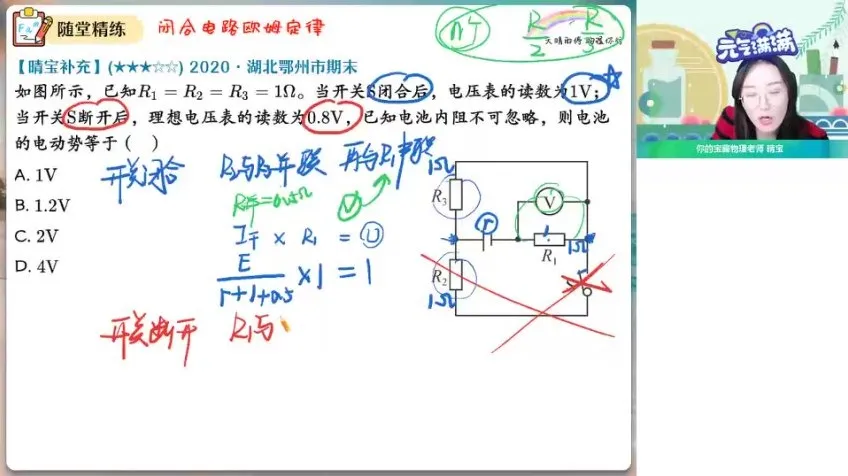 随堂精练 闭合电路欧姆定律
n个 R/2 R/3
天晴雨停 的遇你好
元气满满
【晴宝补充】(★★★☆☆) 2020·湖北鄂州市期末
如图所示，已知R₁ = R₂ = R₃ = 1Ω。当开关S闭合后，电压表的读数为1V；
当开关S断开后，理想电压表的读数为0.8V，已知电池内阻不可忽略，则电池
的电动势等于（ ）
你的宝藏物理老师 晴宝
A. 1V
B. 1.2V
C. 2V
D. 4V
开关闭合 R₂与R₃并联 再与R₁串联
R并=0.5Ω V
I干 × R₁ = U
E/(r+1+0.5) ×1 = 1
开关断开 R₁与
1Ω
R₃
V
r
1Ω
R₁
R₂
S
1Ω